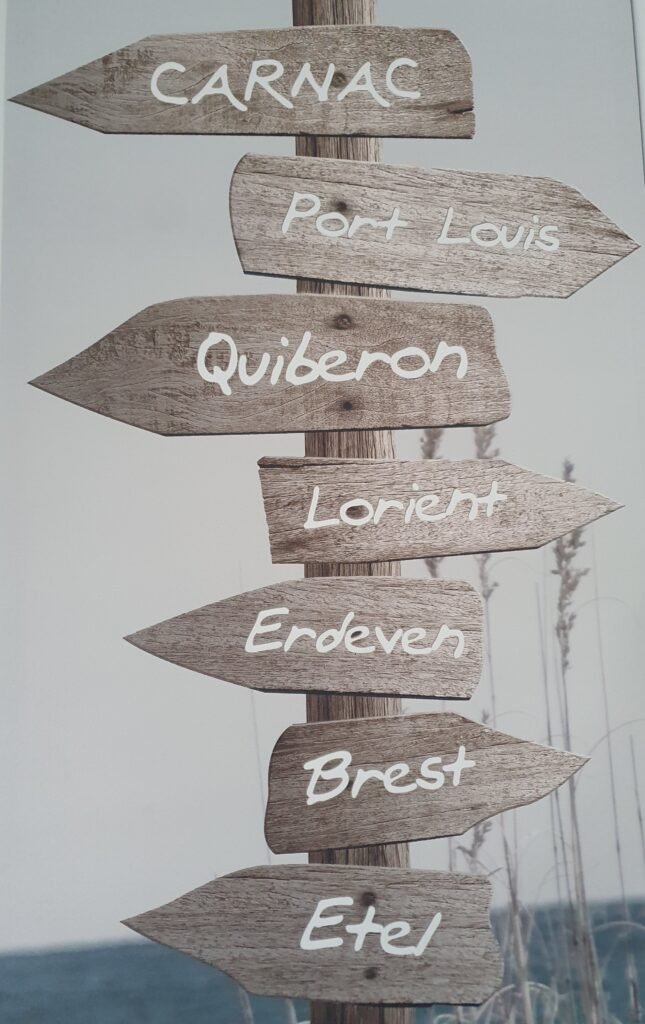 CARNAC
Port Louis
Quiberon
Lorient
Erdeven
Brest
Etel